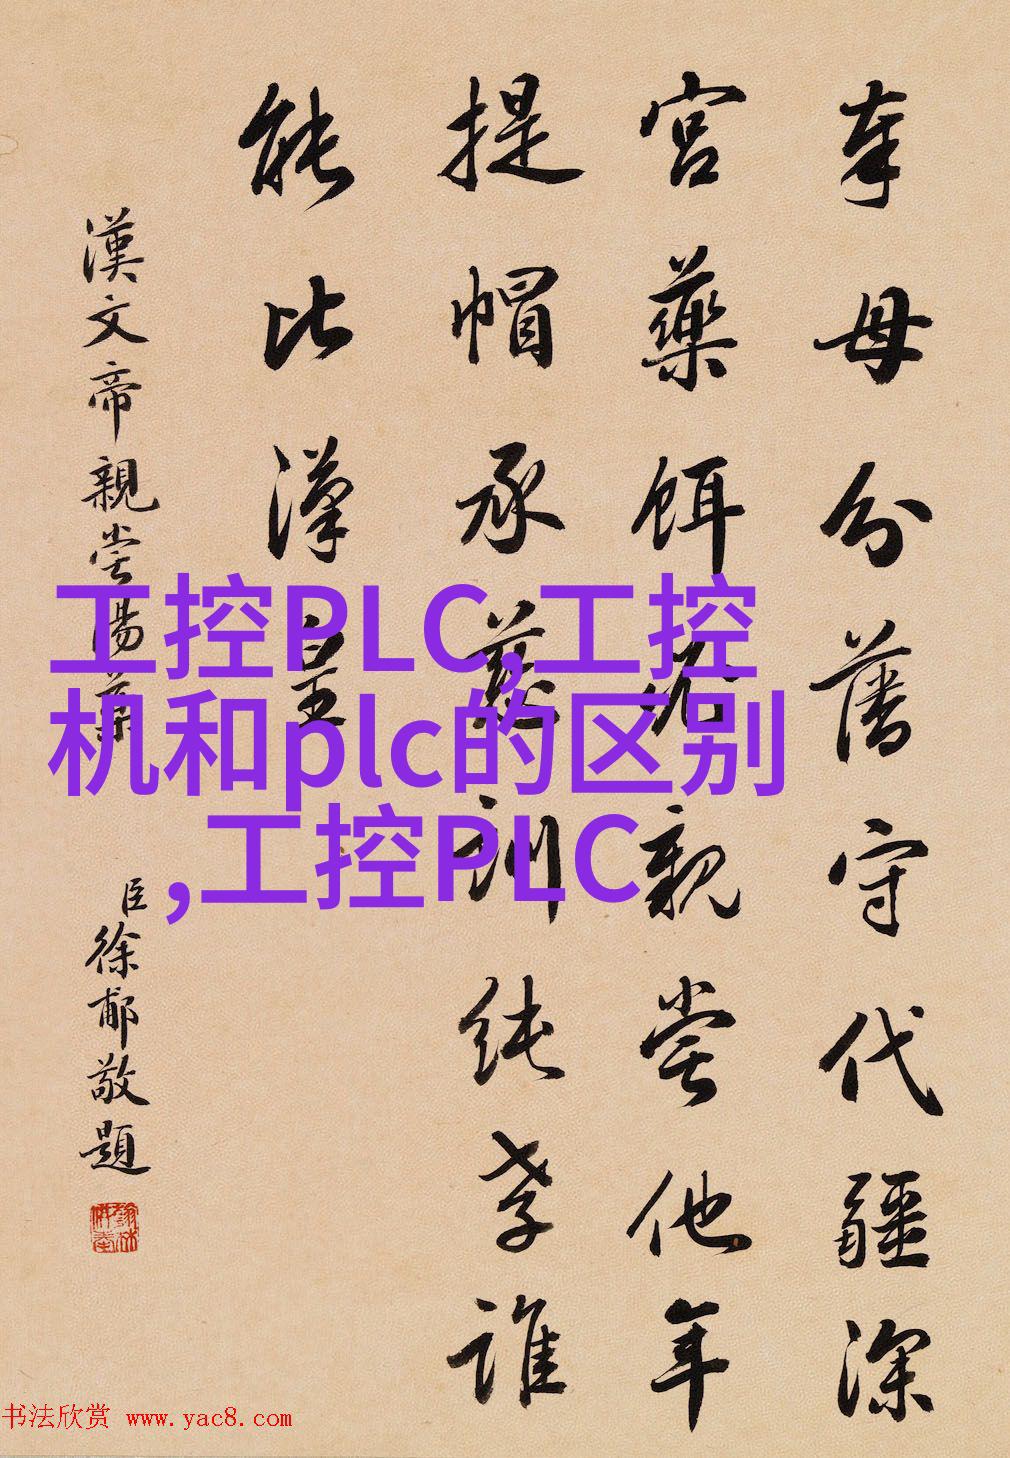 奉母分藩守代疆深
宫藥餌必親嘗他年
提帽承慈訓純孝誰
能比漢皇
漢文帝親嘗湯藥
臣徐郙敬題
工控PLC,工控
机和plc的区别
,工控PLC
书法欣赏 www.yac8.com